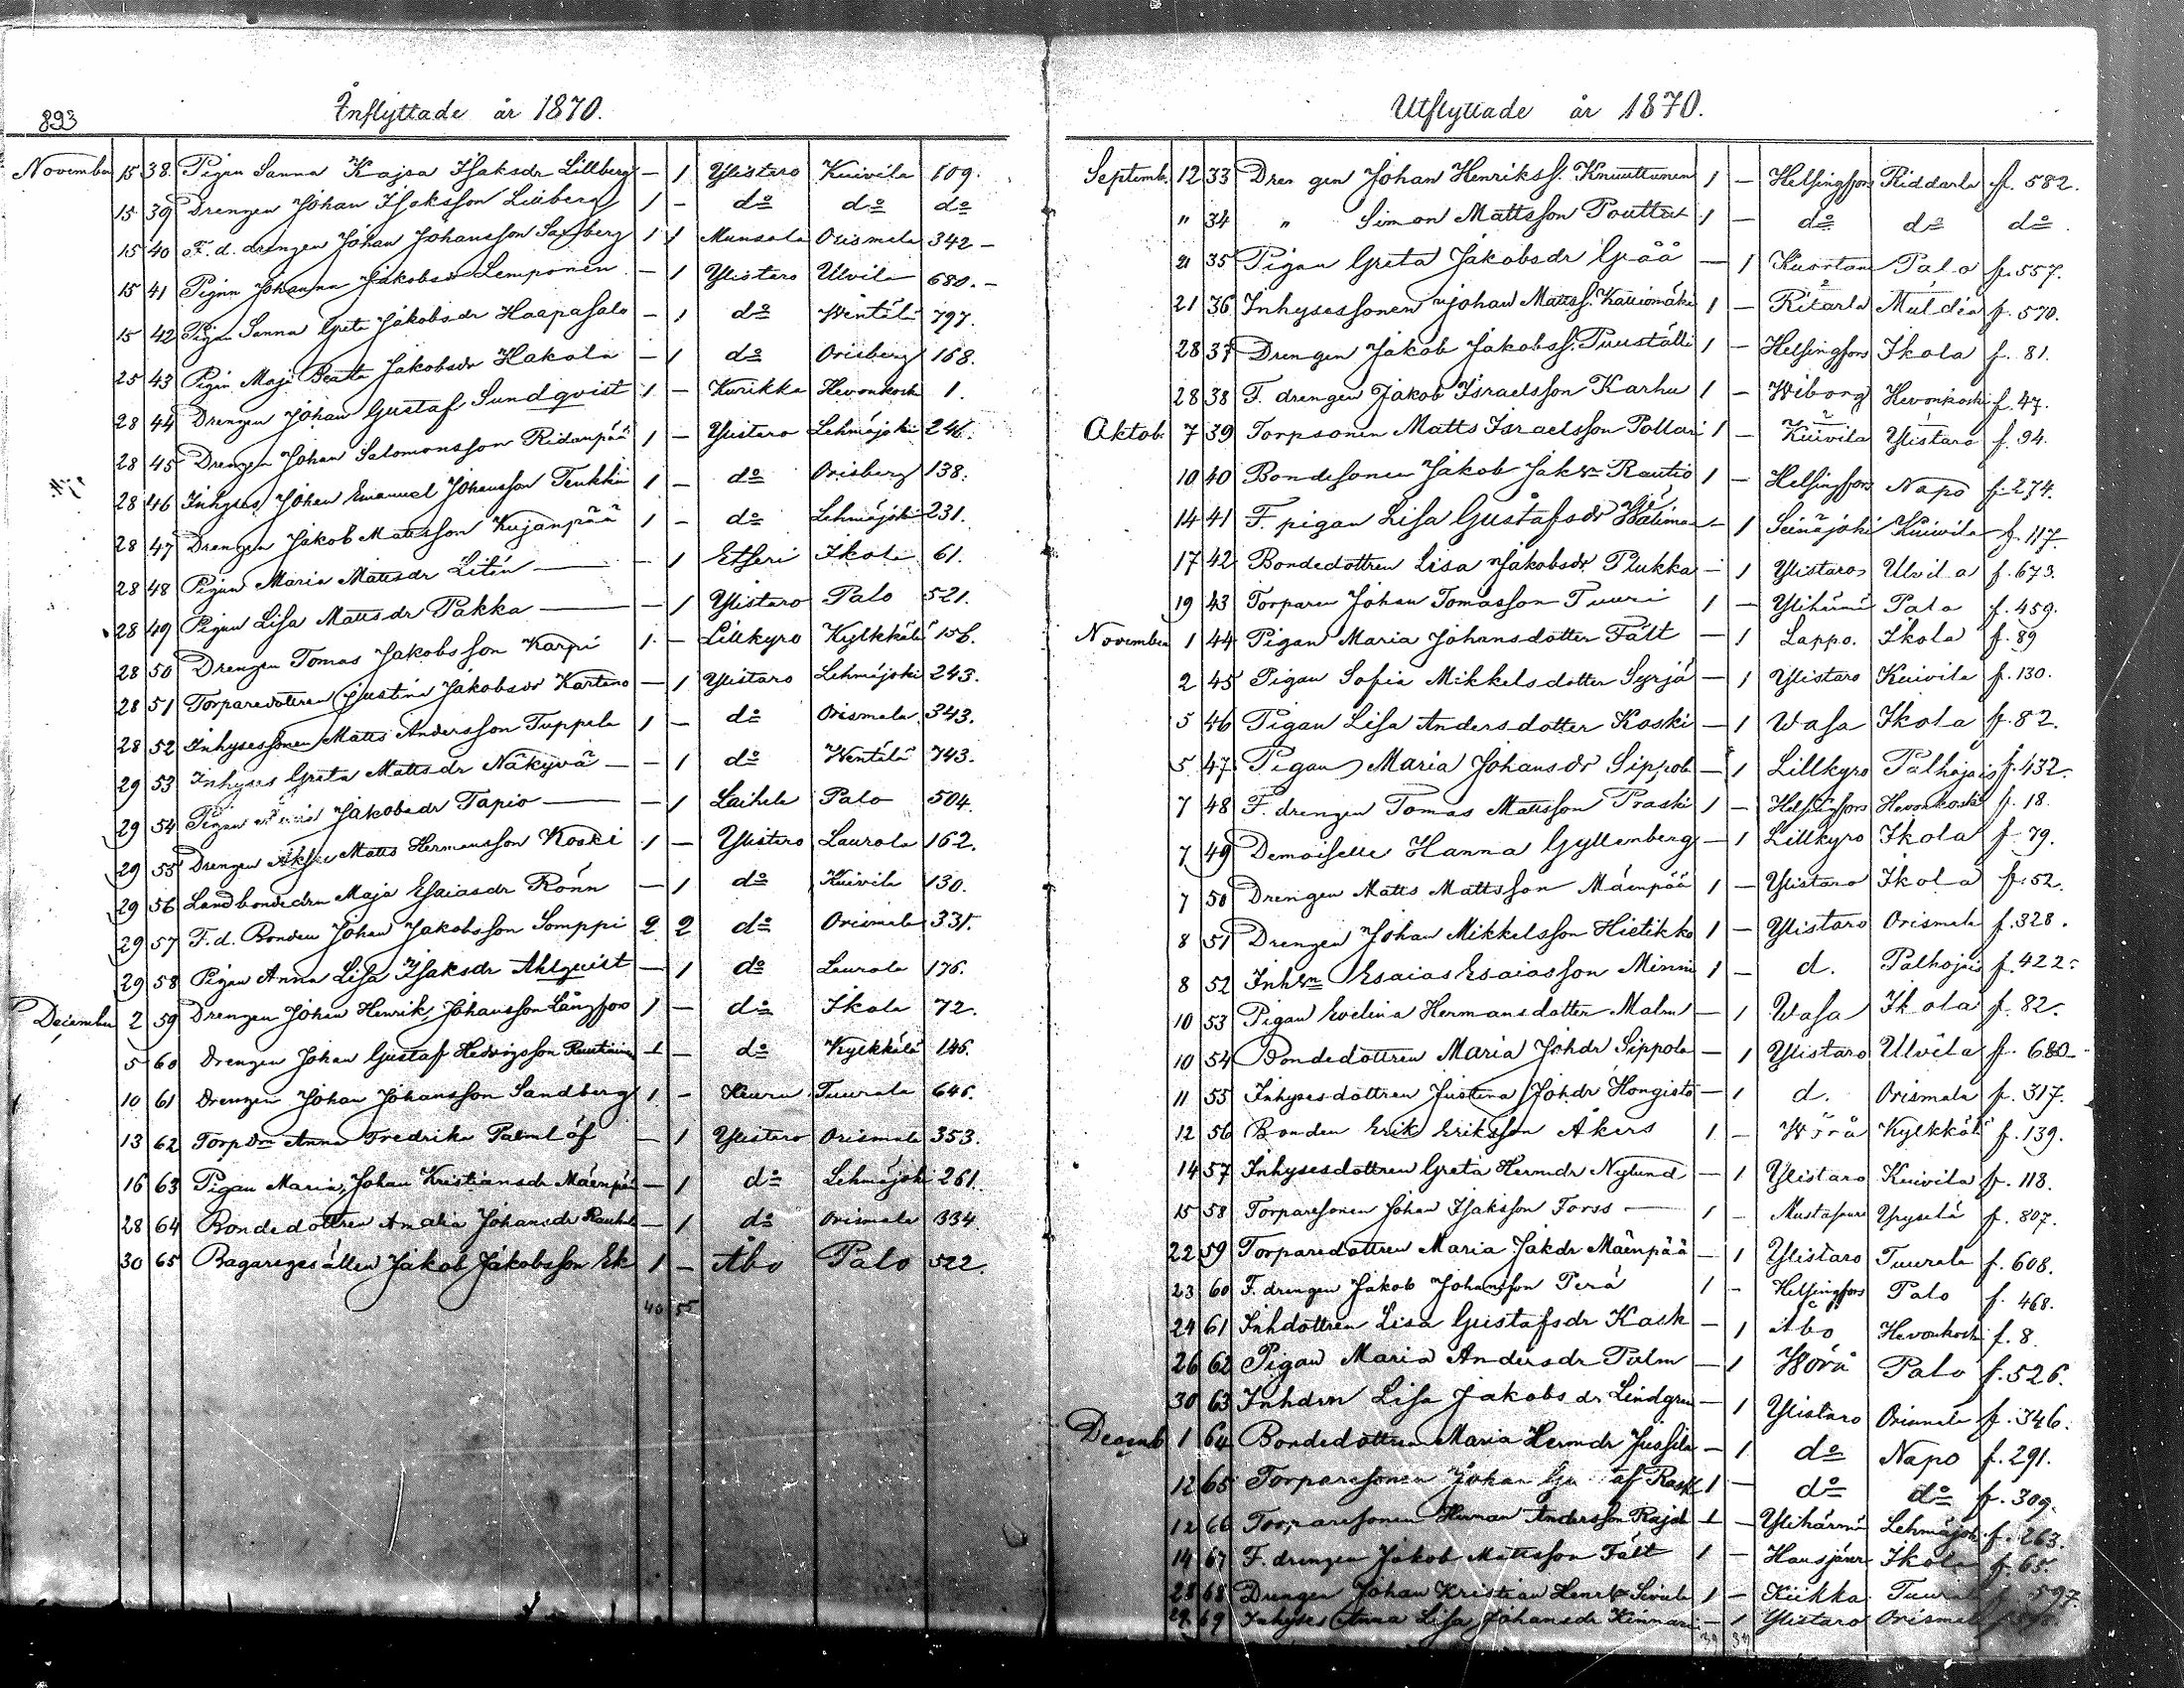 893
Inflyttade år 1870.
November 15 38 Pigan Sanna Kajsa Isaksdr Lillberg – 1 Ylistaro Kuivila 109.
15 39 Drengen Johan Isaksson Lillberg 1 – do do do
15 40 F. d. drengen Johan Johansson Saxberg 1 1 Munsala Orismala 342 –
15 41 Pigan Johanna Jakobsdr Lemponen – 1 Ylistaro Ulvila 680. –
15 42 Pigan Sanna Greta Jakobsdr Haapasalo – 1 do Wentälä 797.
25 43 Pigan Maja Beata Jakobsdr Hakola – 1 do Orisberg 168.
28 44 Drengen Johan Gustaf Sundqvist 1 – Kurikka Hevonkoski 1.
28 45 Drengen Johan Salomonsson Ridanpää 1 – Ylistaro Lehmäjoki 246.
28 46 Inhyses Johan Emanuel Johansson Tenkku 1 – do Orisberg 138.
28 47 Drengen Jakob Mattsson Kujanpää 1 – do Lehmäjoki 231.
28 48 Pigan Maria Mattsdr Litén – 1 Etseri Ikola 61.
28 49 Pigan Lisa Mattsdr Pakka – 1 Ylistaro Palo 521.
28 50 Drengen Tomas Jakobsson Karpi 1 – Lillkyro Kylkkälä 156.
28 51 Torparedottren Justina Jakobsdr Kartano – 1 Ylistaro Lehmäjoki 243.
28 52 Inhysessonen Matts Andersson Tuppela 1 – do Orismala 343.
29 53 Inhyses Greta Mattsdr Näkyvä – 1 do Wentälä 743.
29 54 Pigan Jakobsdr Tapio – 1 Laihela Palo 504.
29 55 Drengen Matts Hermansson Koski 1 – Ylistaro Laurola 162.
29 56 Landbondedrn Maja Esaiasdr Rönn – 1 do Kuivila 130.
29 57 F. d. Bonden Johan Jakobsson Somppi 2 2 do Orismala 331.
29 58 Pigan Anna Lisa Isaksdr Ahlqvist – 1 do Laurola 176.
December 2 59 Drengen Johan Henrik Johansson Långfors 1 – do Ikola 72.
5 60 Drengen Johan Gustaf Hedvigsson 1 – do Kylkkälä 146.
10 61 Drengen Johan Johansson Sandberg 1 – Keuru Tuurala 646.
13 62 Torpdrn Anna Fredrika Palmlöf – 1 Ylistaro Orismala 353.
16 63 Pigan Maria Johan Kristiansdr Mäenpää – 1 do Lehmäjoki 261.
28 64 Bondedottren Amalia Johansdr – 1 do Orismala 334.
30 65 Bagaregesällen Jakob Jakobsson Ek 1 – Åbo Palo 522.
40 55
Utflyttade år 1870.
Septemb. 12 33 Drengen Johan Henrikss. Knuuttunen 1 – Helsingfors Riddarla f. 582.
" 34 " Simon Mattsson Pouttu 1 – do do do
21 35 Pigan Greta Jakobsdr Gråå – 1 Kuortane Palo f. 557.
21 36 Inhysessonen Johan Mattss. Kauiomäki 1 – Ritarla Muldia f. 570.
28 37 Drengen Jakob Jakobss. Puuställi 1 – Helsingfors Ikola f. 81.
28 38 F. drengen Jakob Israelsson Karhu 1 – Wiborg Hevonkoski f. 47.
Oktob. 7 39 Torpsonen Matts Israelsson Pollari 1 – Kuivila Ylistaro f. 94.
10 40 Bondesonen Jakob Jaksn Rautio 1 – Helsingfors Napo f. 274.
14 41 F. pigan Lisa Gustafsdr – 1 Seinäjoki Kuivila f. 117.
17 42 Bondedottren Lisa Jakobsdr Plukka – 1 Ylistaro Ulvila f. 673.
19 43 Torparen Johan Tomasson Tuuri 1 – Ylihärmä Palo f. 459.
November 1 44 Pigan Maria Johansdotter Fält – 1 Lappo. Ikola f. 89
2 45 Pigan Sofia Mikkelsdotter Syrjä – 1 Ylistaro Kuivila f. 130.
5 46 Pigan Lisa Andersdotter Koski – 1 Wasa Ikola f. 82.
5 47 Pigan Maria Johansdr Sippola – 1 Lillkyro Palhojais f. 432.
7 48 F. drengen Tomas Mattsson Praski 1 – Helsingfors Hevonkoski f. 18.
7 49 Demoiselle Hanna Gyllenberg – 1 Lillkyro Ikola f. 79.
7 50 Drengen Matts Mattsson Mäenpää 1 – Ylistaro Ikola f. 52.
8 51 Drengen Johan Mikkelsson Hietikko 1 – Ylistaro Orismala f. 328.
8 52 Inhsn Esaias Esaiasson Minni 1 – d. Palhojais f. 422.
10 53 Pigan Evelina Hermansdotter Malm – 1 Wasa Ikola f. 82.
10 54 Bondedottren Maria Johdr Sippola – 1 Ylistaro Ulvila f. 680.
11 55 Inhysesdottren Justina Johdr Hongisto – 1 d. Orismala f. 317.
12 56 Bonden Erik Eriksson Åkers 1 – Wörå Kylkkälä f. 139.
14 57 Inhysesdottren Greta Hermdr Nylund – 1 Ylistaro Kuivila f. 118.
15 58 Torparesonen Johan Isaksson Forss 1 – Mustasaari Yryselä f. 807.
22 59 Torparedottren Maria Jakdr Mäenpää – 1 Ylistaro Tuurala f. 608.
23 60 F. drengen Jakob Johansson Perä 1 – Helsingfors Palo f. 468.
24 61 Inhdottren Lisa Gustafsdr Kask – 1 Åbo Hevonkoski f. 8.
26 62 Pigan Maria Andersdr Palm – 1 Wörå Palo f. 526.
30 63 Inhdrn Lisa Jakobsdr Lindgren – 1 Ylistaro Orismala f. 346.
Decemb. 1 64 Bondedottren Maria Hermdr Jussila – 1 do Napo f. 291.
12 65 Torparesonen Johan Gu af Rask 1 – do do f. 309.
12 66 Torparesonen Herman Andersson 1 – Ylihärmä Lehmäjoki f. 263.
14 67 F. drengen Jakob Mattsson Fält 1 – Hausjärvi Ikola f. 65.
28 68 Drengen Johan Kristian Henriks 1 – Kiikka Tuurala f. 597.
29 69 Inhyses Anna Lisa Johansdr Kinnari – 1 Ylistaro Orismala